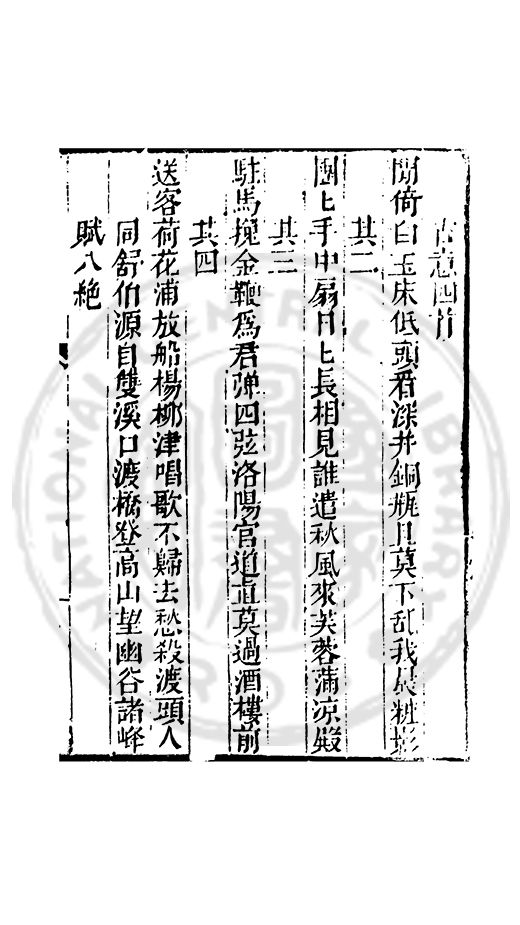 古意四首
閒倚白玉床低頭看深井銅瓶且莫下乱我晨粧影
其二
團〻手中扇日〻長相見誰遣秋風來芙蓉蒲凉殿
其三
駐馬挽金鞭爲君弹四弦洛陽官道直莫過酒樓前
其四
送客荷花浦放船楊柳津唱歌不歸去愁殺渡頭人
同舒伯源自雙溪口渡橋登高山望幽谷諸峰
賦八絶